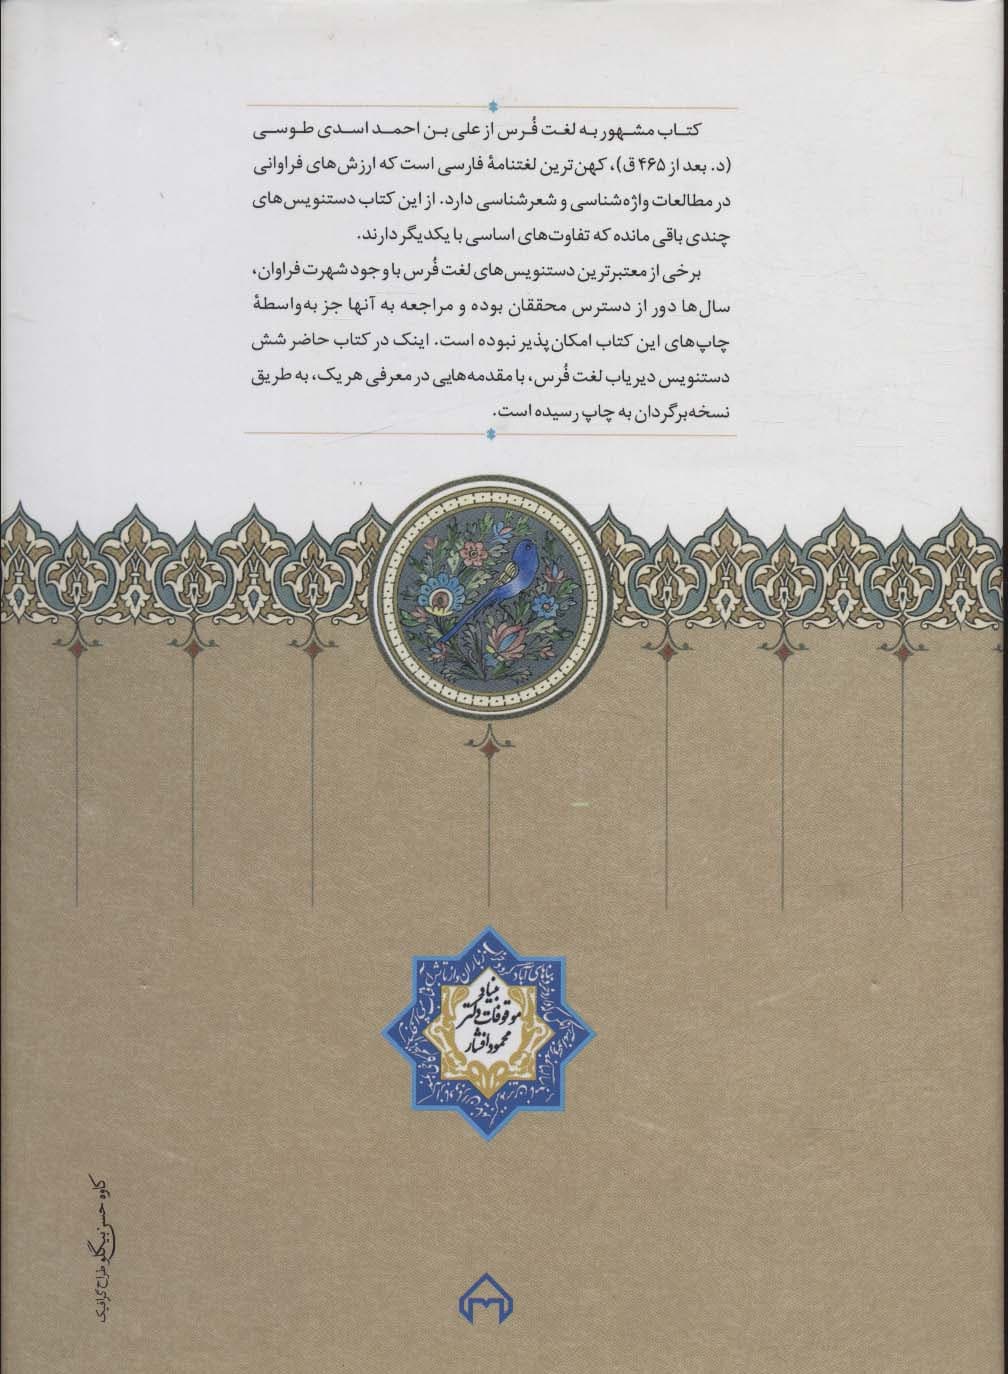 کتاب مشهور به لغت فُرس از علی بن احمد اسدی طوسی
(د. بعد از ۴۶۵ ق)، کهن‌ترین لغتنامهٔ فارسی است که ارزش‌های فراوانی
در مطالعات واژه‌شناسی و شعرشناسی دارد. از این کتاب دستنویس‌های
چندی باقی مانده که تفاوت‌های اساسی با یکدیگر دارند.
برخی از معتبرترین دستنویس‌های لغت فُرس با وجود شهرت فراوان،
سال‌ها دور از دسترس محققان بوده و مراجعه به آنها جز به‌واسطهٔ
چاپ‌های این کتاب امکان‌پذیر نبوده است. اینک در کتاب حاضر شش
دستنویس دیریاب لغت فُرس، با مقدمه‌هایی در معرفی هر یک، به طریق
نسخه‌برگردان به چاپ رسیده است.
بنیاد
موقوفات دکتر
محمود افشار
کاوه حسن‌بیگلو طراح گرافیک